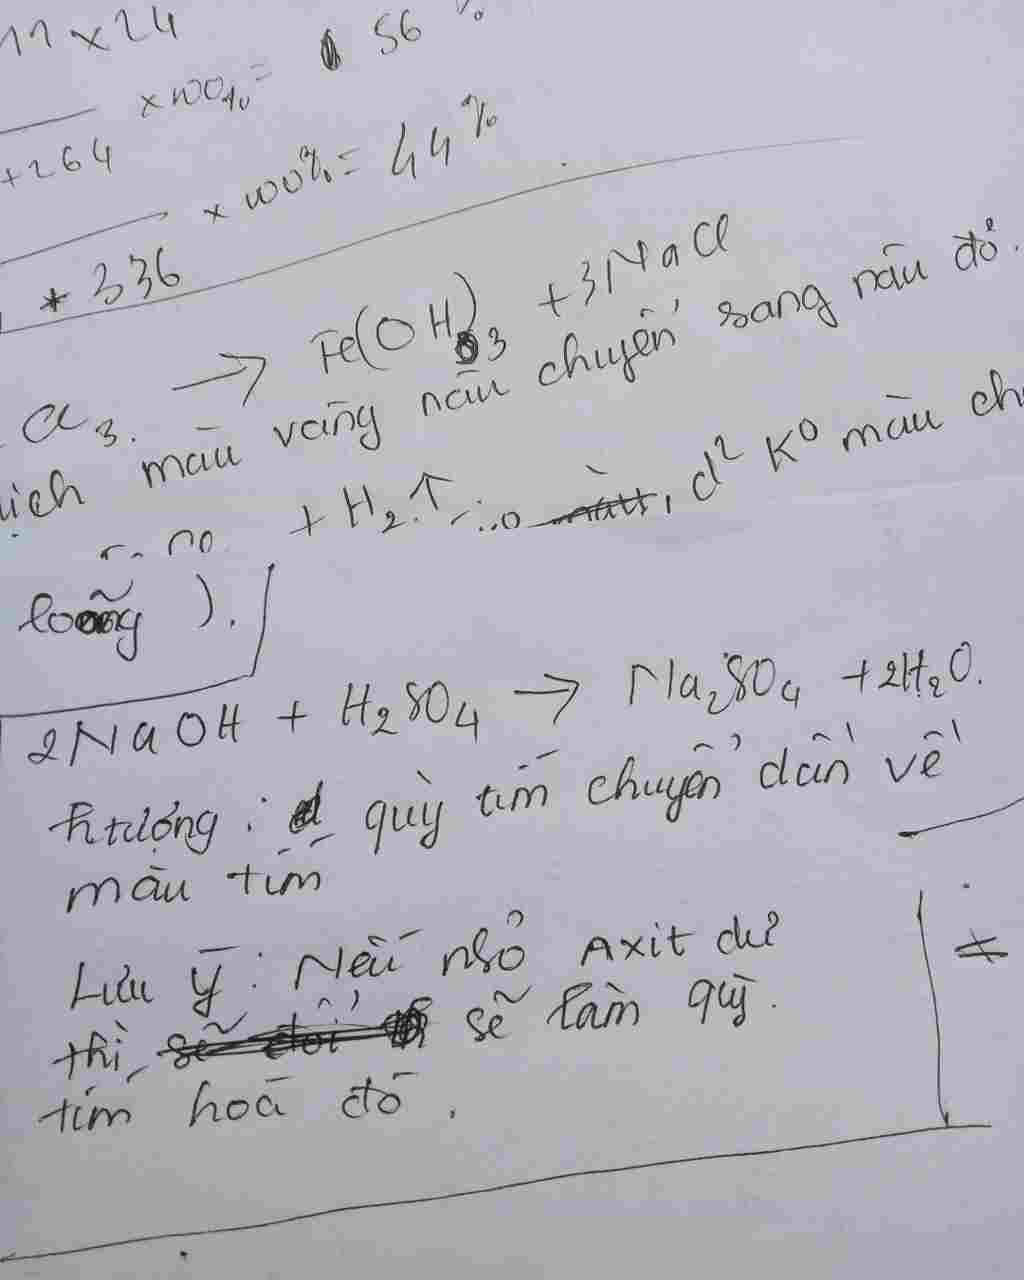 11 x 24
x 100% = 56 %
+ 264
x 100% = 44%
+ 336
Cl3. → Fe(OH)3 + 3NaCl
dịch màu vàng nâu chuyển sang nâu đỏ.
+ H2↑ d² K⁰ màu
loãng ).
2NaOH + H2SO4 → Na2SO4 + 2H2O.
Htượng : quỳ tím chuyển dần về
màu tím
Lưu ý : Nếu nhỏ Axit dư
thì sẽ làm quỳ.
tím hoá đỏ.